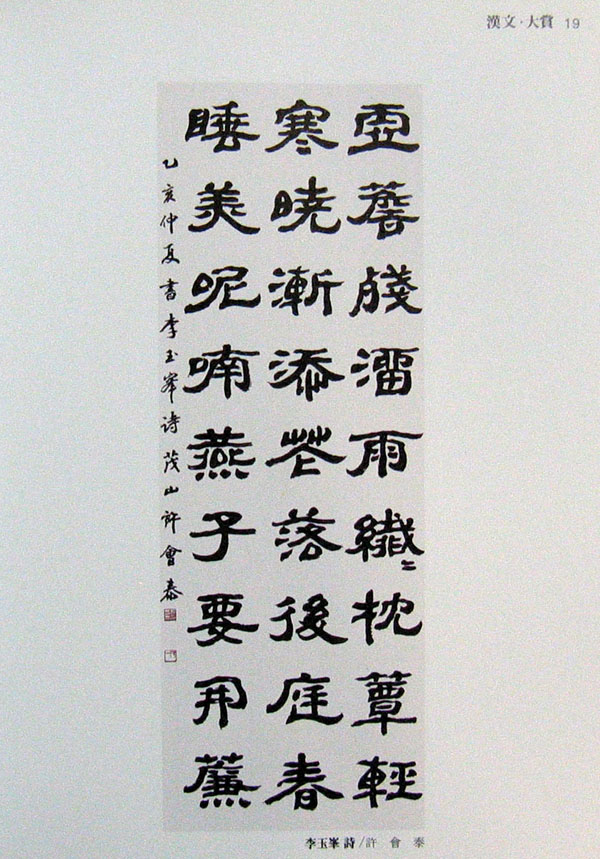 漢文·大賞 19
虛簷殘溜雨纖〻枕簟輕
寒曉漸添花落後庭春
睡美呢喃燕子要開簾
乙亥仲夏書李玉峯詩 茂山許會泰
李玉峯 詩/許會泰